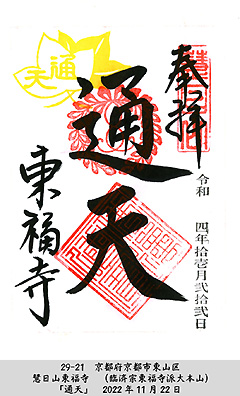 奉拝
通天
令和 四年拾壱月弐拾弐日
東福寺
通天
29-21 京都府京都市東山区
慧日山東福寺 (臨済宗東福寺派大本山)
「通天」 2022年11月22日